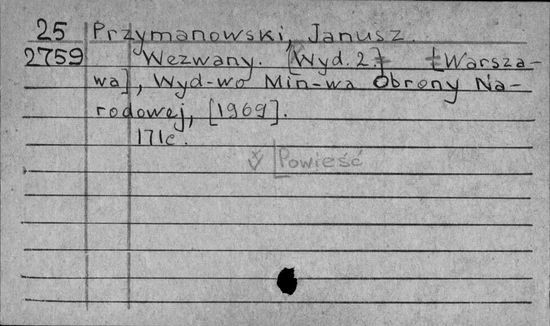 25 Przymanowski, Janusz.
2759 Wezwany. [Wyd. 2.] [Warsza-
wa], Wyd-wo Min-wa Obrony Na-
rodowej, [1969].
171c.
[Powieść